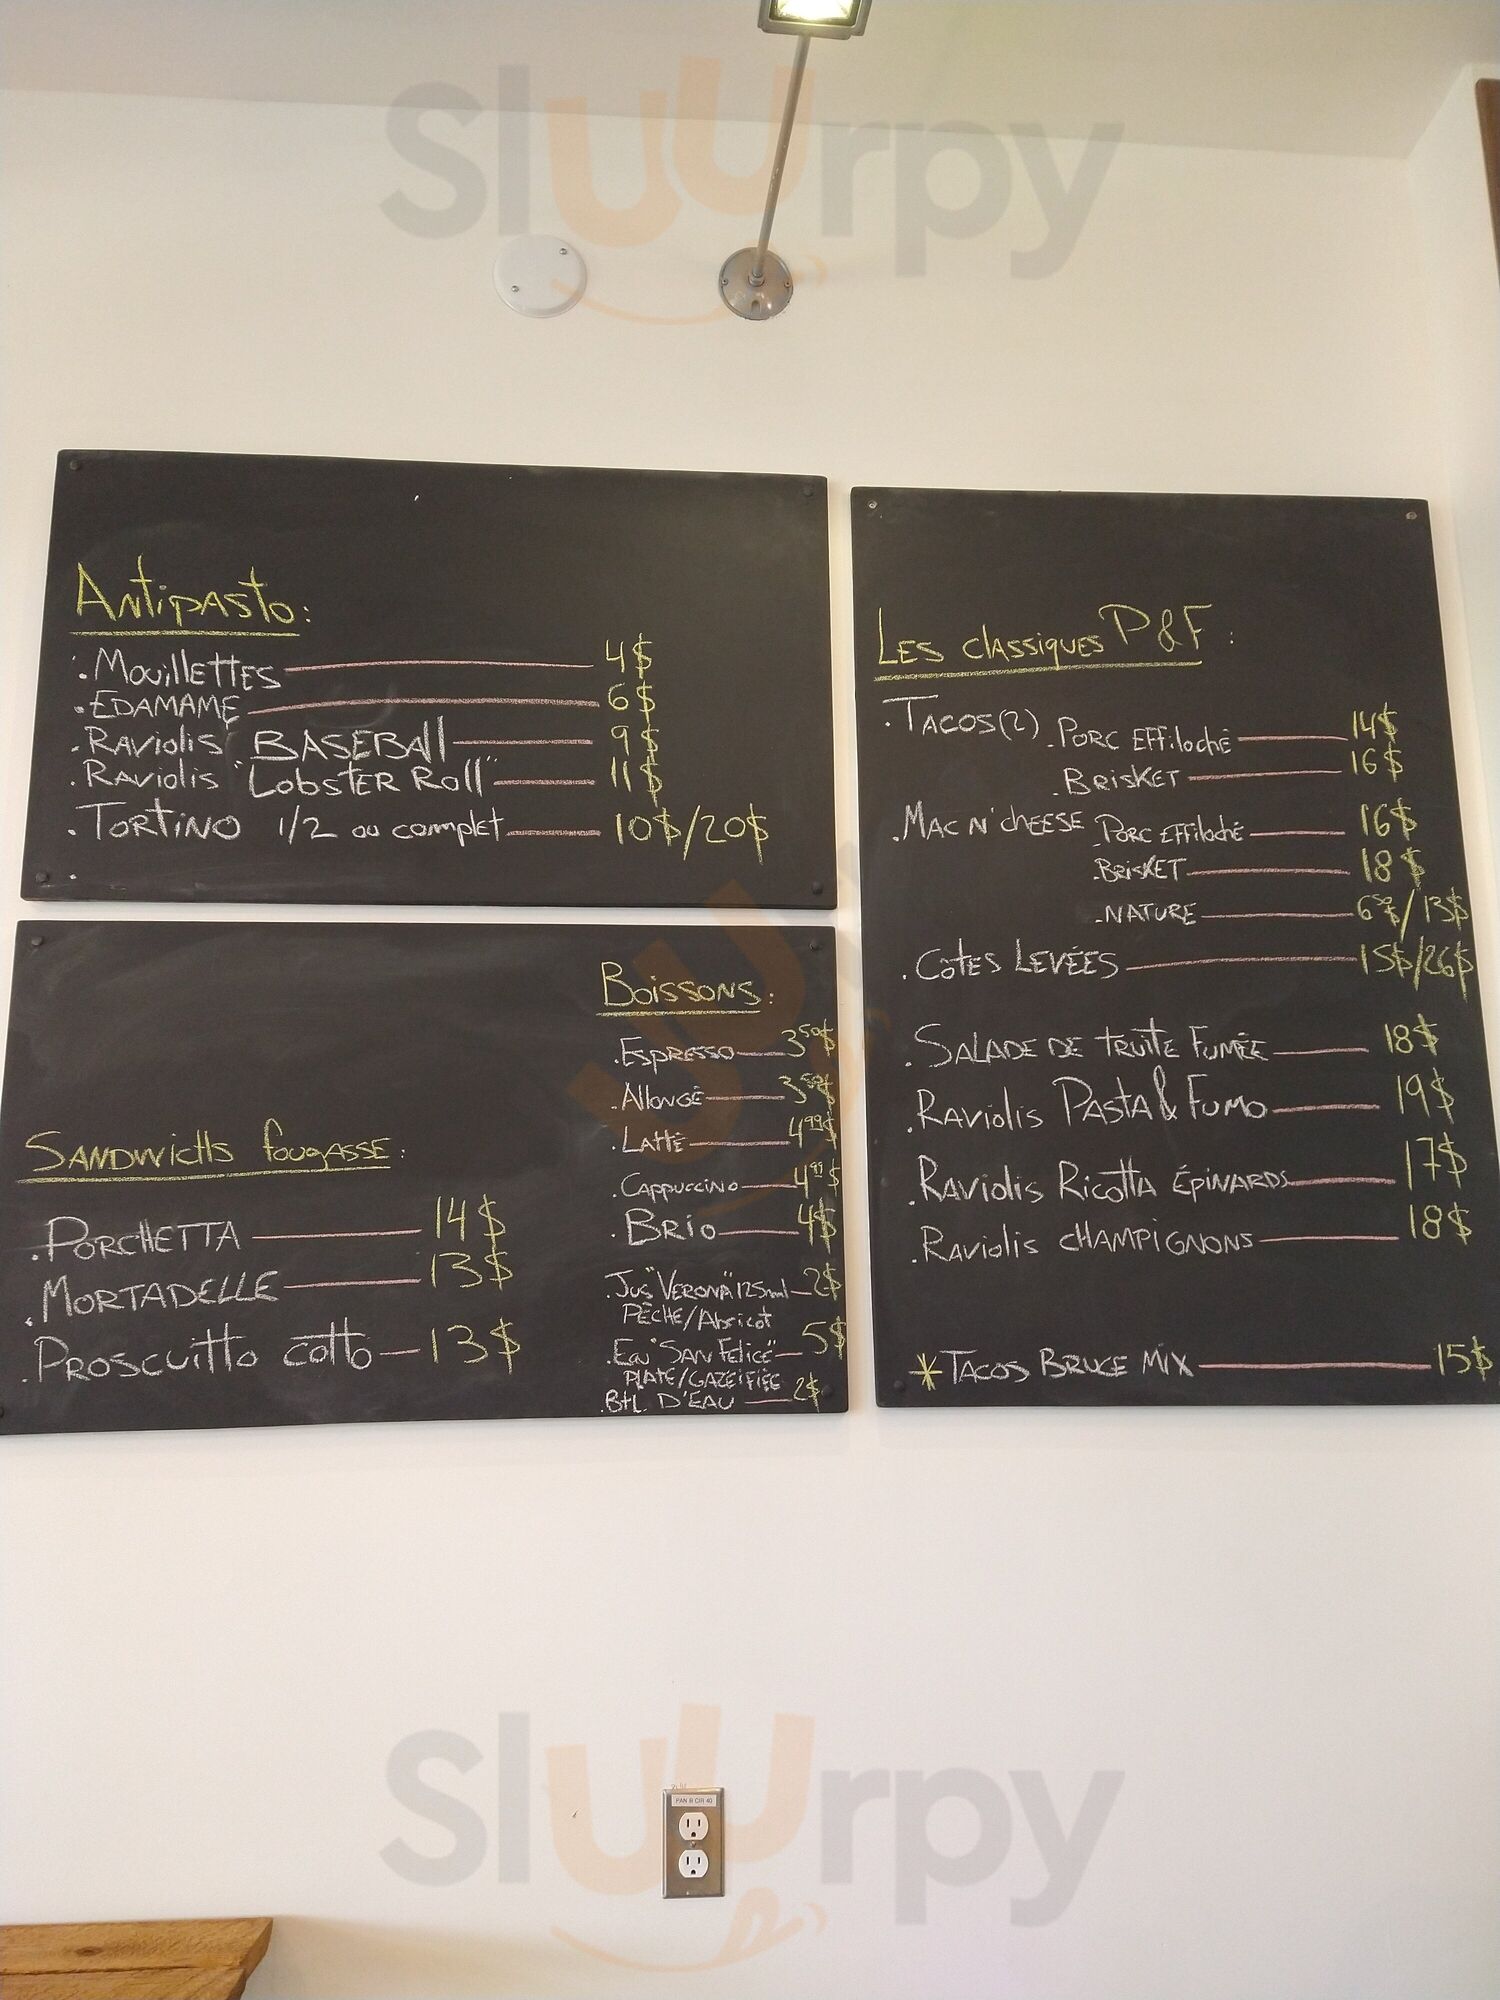 Sluurpy
ANTIPASTO:
. MOUILLETTES 4$
. EDAMAME 6$
. RAVIOLIS "BASEBALL 9$
. RAVIOLIS "LOBSTER ROLL" 11$
. TORTINO 1/2 OU COMPLET 10$/20$
SANDWICHS FOUGASSE:
. PORCHETTA 14$
. MORTADELLE 13$
. PROSCUITTO COTTO 13$
BOISSONS:
. ESPRESSO 3.50$
. ALLONGÉ 3.50$
. LATTÉ 4.99$
. CAPPUCCINO 4.99$
. BRIO 4$
. JUS "VERONA" 125ml 2$
PÊCHE/ABRICOT
. EAU "SAN FELICE" 5$
PLATE/GAZÉIFIÉE
. BTL D'EAU 2$
LES CLASSIQUES P&F :
. TACOS(2) . PORC EFFILOCHÉ 14$
. BRISKET 16$
. MAC N' CHEESE . PORC EFFILOCHÉ 16$
. BRISKET 18$
. NATURE 6.50$/13$
. CÔTES LEVÉES 15$/26$
. SALADE DE TRUITE FUMÉE 18$
. RAVIOLIS PASTA & FUMO 19$
. RAVIOLIS RICOTTA ÉPINARDS 17$
. RAVIOLIS CHAMPIGNONS 18$
* TACOS BRUCE MIX 15$
PAN B CIR 40
Sluurpy